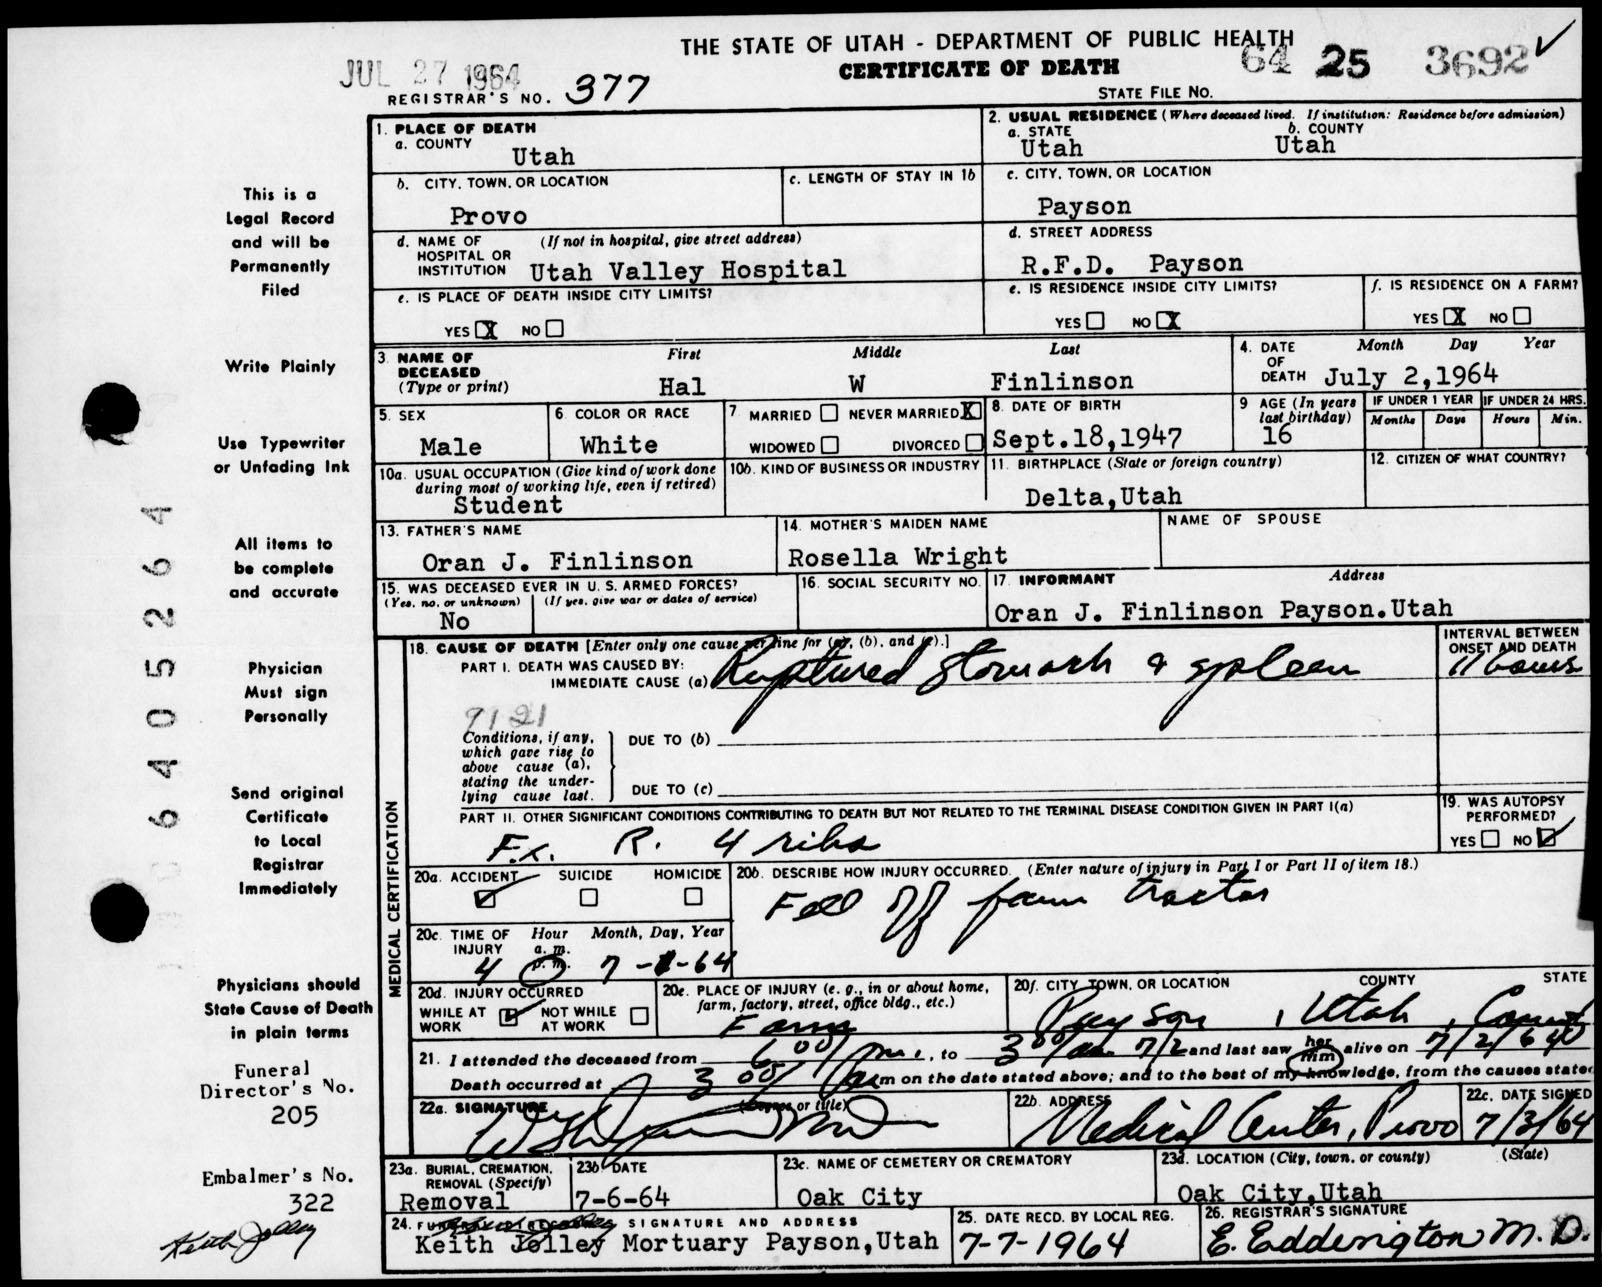 THE STATE OF UTAH - DEPARTMENT OF PUBLIC HEALTH
CERTIFICATE OF DEATH
JUL 27 1964
REGISTRAR'S NO. 377
STATE FILE No. 64 25 3692 ✓
This is a
Legal Record
and will be
Permanently
Filed
Write Plainly
Use Typewriter
or Unfading Ink
All items to
be complete
and accurate
Physician
Must sign
Personally
Send original
Certificate
to Local
Registrar
Immediately
Physicians should
State Cause of Death
in plain terms
Funeral
Director's No.
205
Embalmer's No.
322
Keith Jolley
6405264
1. PLACE OF DEATH
a. COUNTY
Utah
2. USUAL RESIDENCE (Where deceased lived. If institution: Residence before admission)
a. STATE b. COUNTY
Utah Utah
b. CITY, TOWN, OR LOCATION
Provo
c. LENGTH OF STAY IN 1b
c. CITY, TOWN, OR LOCATION
Payson
d. NAME OF (If not in hospital, give street address)
HOSPITAL OR
INSTITUTION Utah Valley Hospital
d. STREET ADDRESS
R.F.D. Payson
e. IS PLACE OF DEATH INSIDE CITY LIMITS?
YES X NO
e. IS RESIDENCE INSIDE CITY LIMITS?
YES NO X
f. IS RESIDENCE ON A FARM?
YES X NO
3. NAME OF First Middle Last
DECEASED
(Type or print) Hal W Finlinson
4. DATE Month Day Year
OF
DEATH July 2,1964
5. SEX
Male
6. COLOR OR RACE
White
7 MARRIED NEVER MARRIED X
WIDOWED DIVORCED
8. DATE OF BIRTH
Sept.18,1947
9 AGE (In years
last birthday)
16
IF UNDER 1 YEAR
Months Days
IF UNDER 24 HRS.
Hours Min.
10a. USUAL OCCUPATION (Give kind of work done
during most of working life, even if retired)
Student
10b. KIND OF BUSINESS OR INDUSTRY
11. BIRTHPLACE (State or foreign country)
Delta,Utah
12. CITIZEN OF WHAT COUNTRY?
13. FATHER'S NAME
Oran J. Finlinson
14. MOTHER'S MAIDEN NAME
Rosella Wright
NAME OF SPOUSE
15. WAS DECEASED EVER IN U. S. ARMED FORCES?
(Yes, no, or unknown) (If yes, give war or dates of service)
No
16. SOCIAL SECURITY NO.
17. INFORMANT Address
Oran J. Finlinson Payson.Utah
MEDICAL CERTIFICATION
18. CAUSE OF DEATH [Enter only one cause per line for (a), (b), and (c).]
PART I. DEATH WAS CAUSED BY:
IMMEDIATE CAUSE (a) Ruptured stomach & spleen
INTERVAL BETWEEN
ONSET AND DEATH
11 hours
9121
Conditions, if any,
which gave rise to
above cause (a),
stating the under-
lying cause last.
DUE TO (b)
DUE TO (c)
PART II. OTHER SIGNIFICANT CONDITIONS CONTRIBUTING TO DEATH BUT NOT RELATED TO THE TERMINAL DISEASE CONDITION GIVEN IN PART I(a)
Fx. R. 4 ribs
19. WAS AUTOPSY
PERFORMED?
YES NO ✓
20a. ACCIDENT SUICIDE HOMICIDE
✓
20b. DESCRIBE HOW INJURY OCCURRED. (Enter nature of injury in Part I or Part II of item 18.)
Fell off farm tractor
20c. TIME OF Hour Month, Day, Year
INJURY a. m.
4 p. m. 7-1-64
20d. INJURY OCCURRED
WHILE AT ✓ NOT WHILE
WORK AT WORK
20e. PLACE OF INJURY (e. g., in or about home,
farm, factory, street, office bldg., etc.)
Farm
20f. CITY, TOWN, OR LOCATION COUNTY STATE
Payson, Utah, County
21. I attended the deceased from 6:00/pm., to 3:00/am 7/2 and last saw her him alive on 7/2/64
Death occurred at 3:00/am m on the date stated above; and to the best of my knowledge, from the causes stated
22a. SIGNATURE (Degree or title)
22b. ADDRESS
Medical Center, Provo
22c. DATE SIGNED
7/3/64
23a. BURIAL, CREMATION,
REMOVAL (Specify)
Removal
23b DATE
7-6-64
23c. NAME OF CEMETERY OR CREMATORY
Oak City
23d. LOCATION (City, town, or county) (State)
Oak City,Utah
24. FUNERAL DIRECTOR'S SIGNATURE AND ADDRESS
Keith Jolley Mortuary Payson,Utah
25. DATE RECD. BY LOCAL REG.
7-7-1964
26. REGISTRAR'S SIGNATURE
E. Eddington M. D.